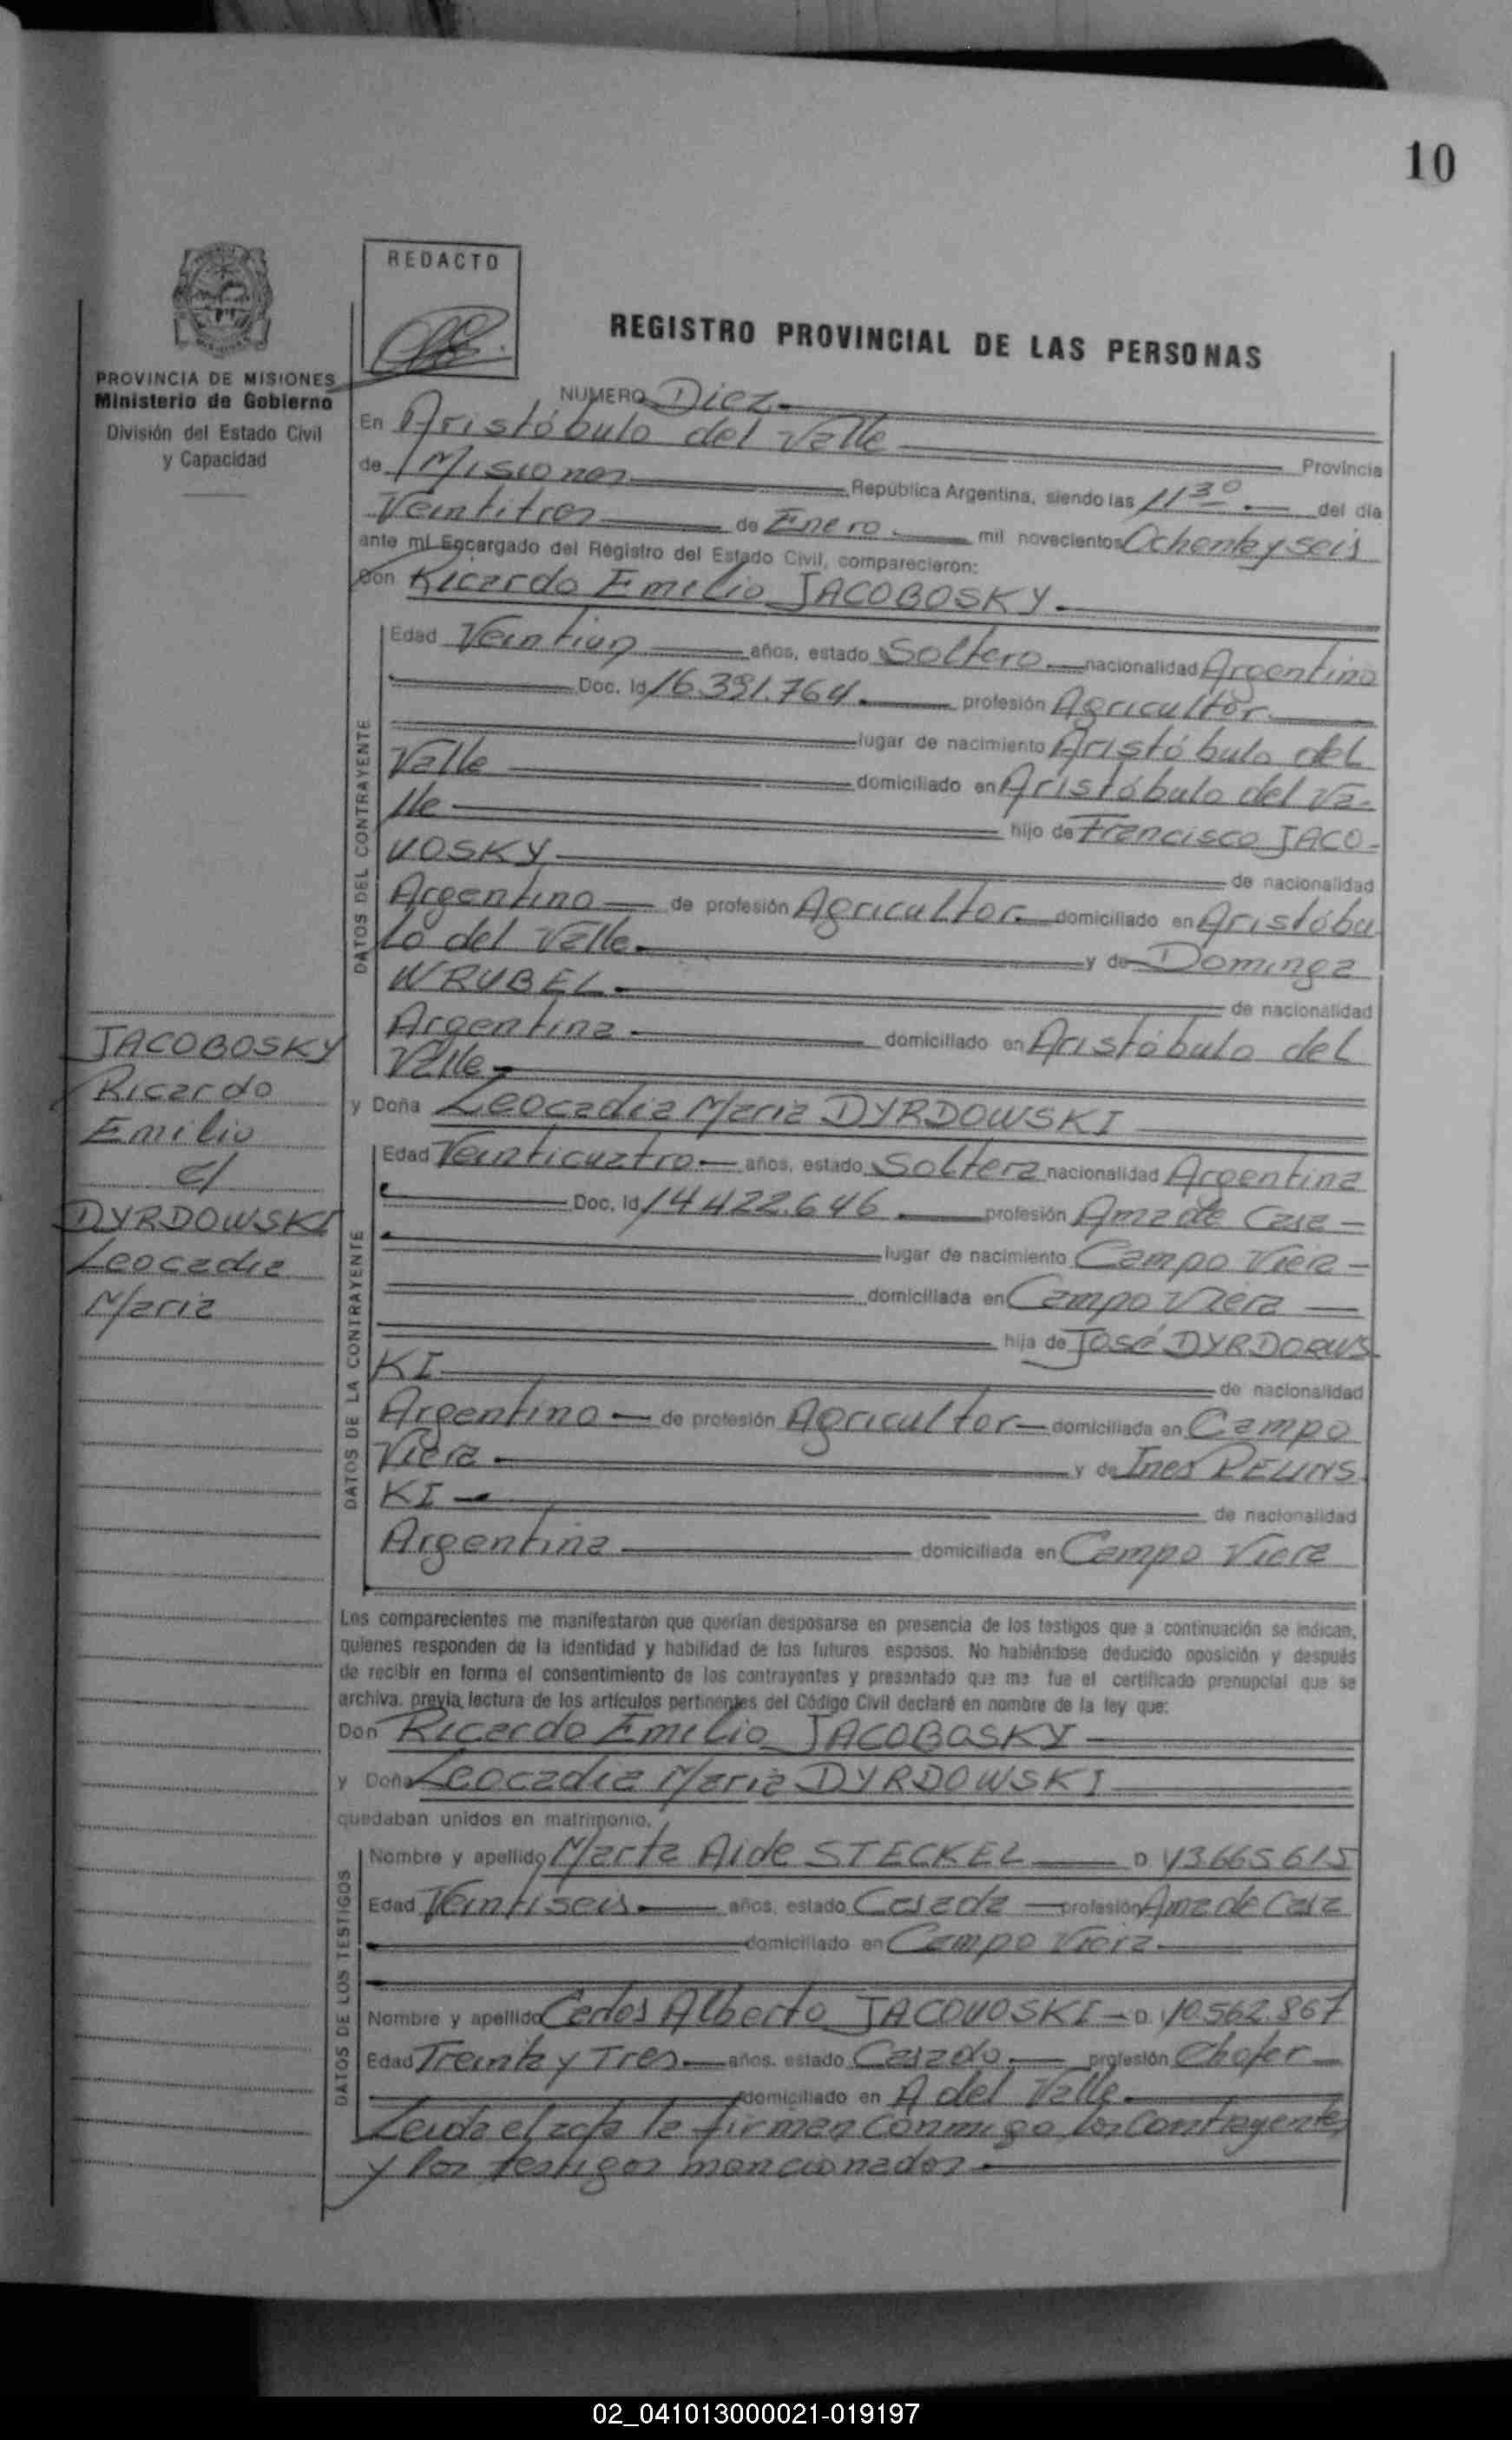 10
REDACTO
REGISTRO PROVINCIAL DE LAS PERSONAS
PROVINCIA DE MISIONES
Ministerio de Gobierno
División del Estado Civil
y Capacidad
NUMERO Diez
En Aristóbulo del Valle Provincia
de Misiones República Argentina, siendo las 11 30 del día
Veintitres de Enero mil novecientos Ochenta y seis
ante mí Encargado del Registro del Estado Civil, comparecieron:
Don Ricardo Emilio JACOBOSKY
DATOS DEL CONTRAYENTE
Edad Veintiun años, estado Soltero nacionalidad Argentino
Doc. Id 16.391.764 profesión Agricultor
lugar de nacimiento Aristóbulo del
Valle domiciliado en Aristóbulo del Va-
lle hijo de Francisco JACO-
VOSKY de nacionalidad
Argentino de profesión Agricultor domiciliado en Aristóbu
lo del Valle y de Dominga
WRUBEL de nacionalidad
Argentina domiciliado en Aristóbulo del
Valle
JACOBOSKY
Ricardo
Emilio
c/
DYRDOWSKI
Leocadia
Maria
y Doña Leocadia Maria DYRDOWSKI
DATOS DE LA CONTRAYENTE
Edad Veinticuatro años, estado Soltera nacionalidad Argentina
Doc. Id 14422.646 profesión Ama de Casa
lugar de nacimiento Campo Viera
domiciliada en Campo Viera
hija de José DYRDORWS
KI de nacionalidad
Argentino de profesión Agricultor domiciliada en Campo
Viera y de Ines
KI de nacionalidad
Argentina domiciliada en Campo Viera
Los comparecientes me manifestaron que querían desposarse en presencia de los testigos que a continuación se indican,
quienes responden de la identidad y habilidad de los futuros esposos. No habiéndose deducido oposición y después
de recibir en forma el consentimiento de los contrayentes y presentado que me fue el certificado prenupcial que se
archiva. previa lectura de los artículos pertinentes del Código Civil declaré en nombre de la ley que:
Don Ricardo Emilio JACOBOSKY
y Doña Leocadia Maria DYRDOWSKI
quedaban unidos en matrimonio.
DATOS DE LOS TESTIGOS
Nombre y apellido Marta Aide STECKEL D 13665615
Edad Veintiseis años, estado Casada profesión Ama de Casa
domiciliado en Campo Viera
Nombre y apellido Carlos Alberto JACOVOSKI D. 10.562.867
Edad Treinta y Tres años. estado Casado profesión Chofer
domiciliado en A del Valle
Leida el acta la firman conmigo los contrayentes
y los testigos mencionados
02_041013000021-019197